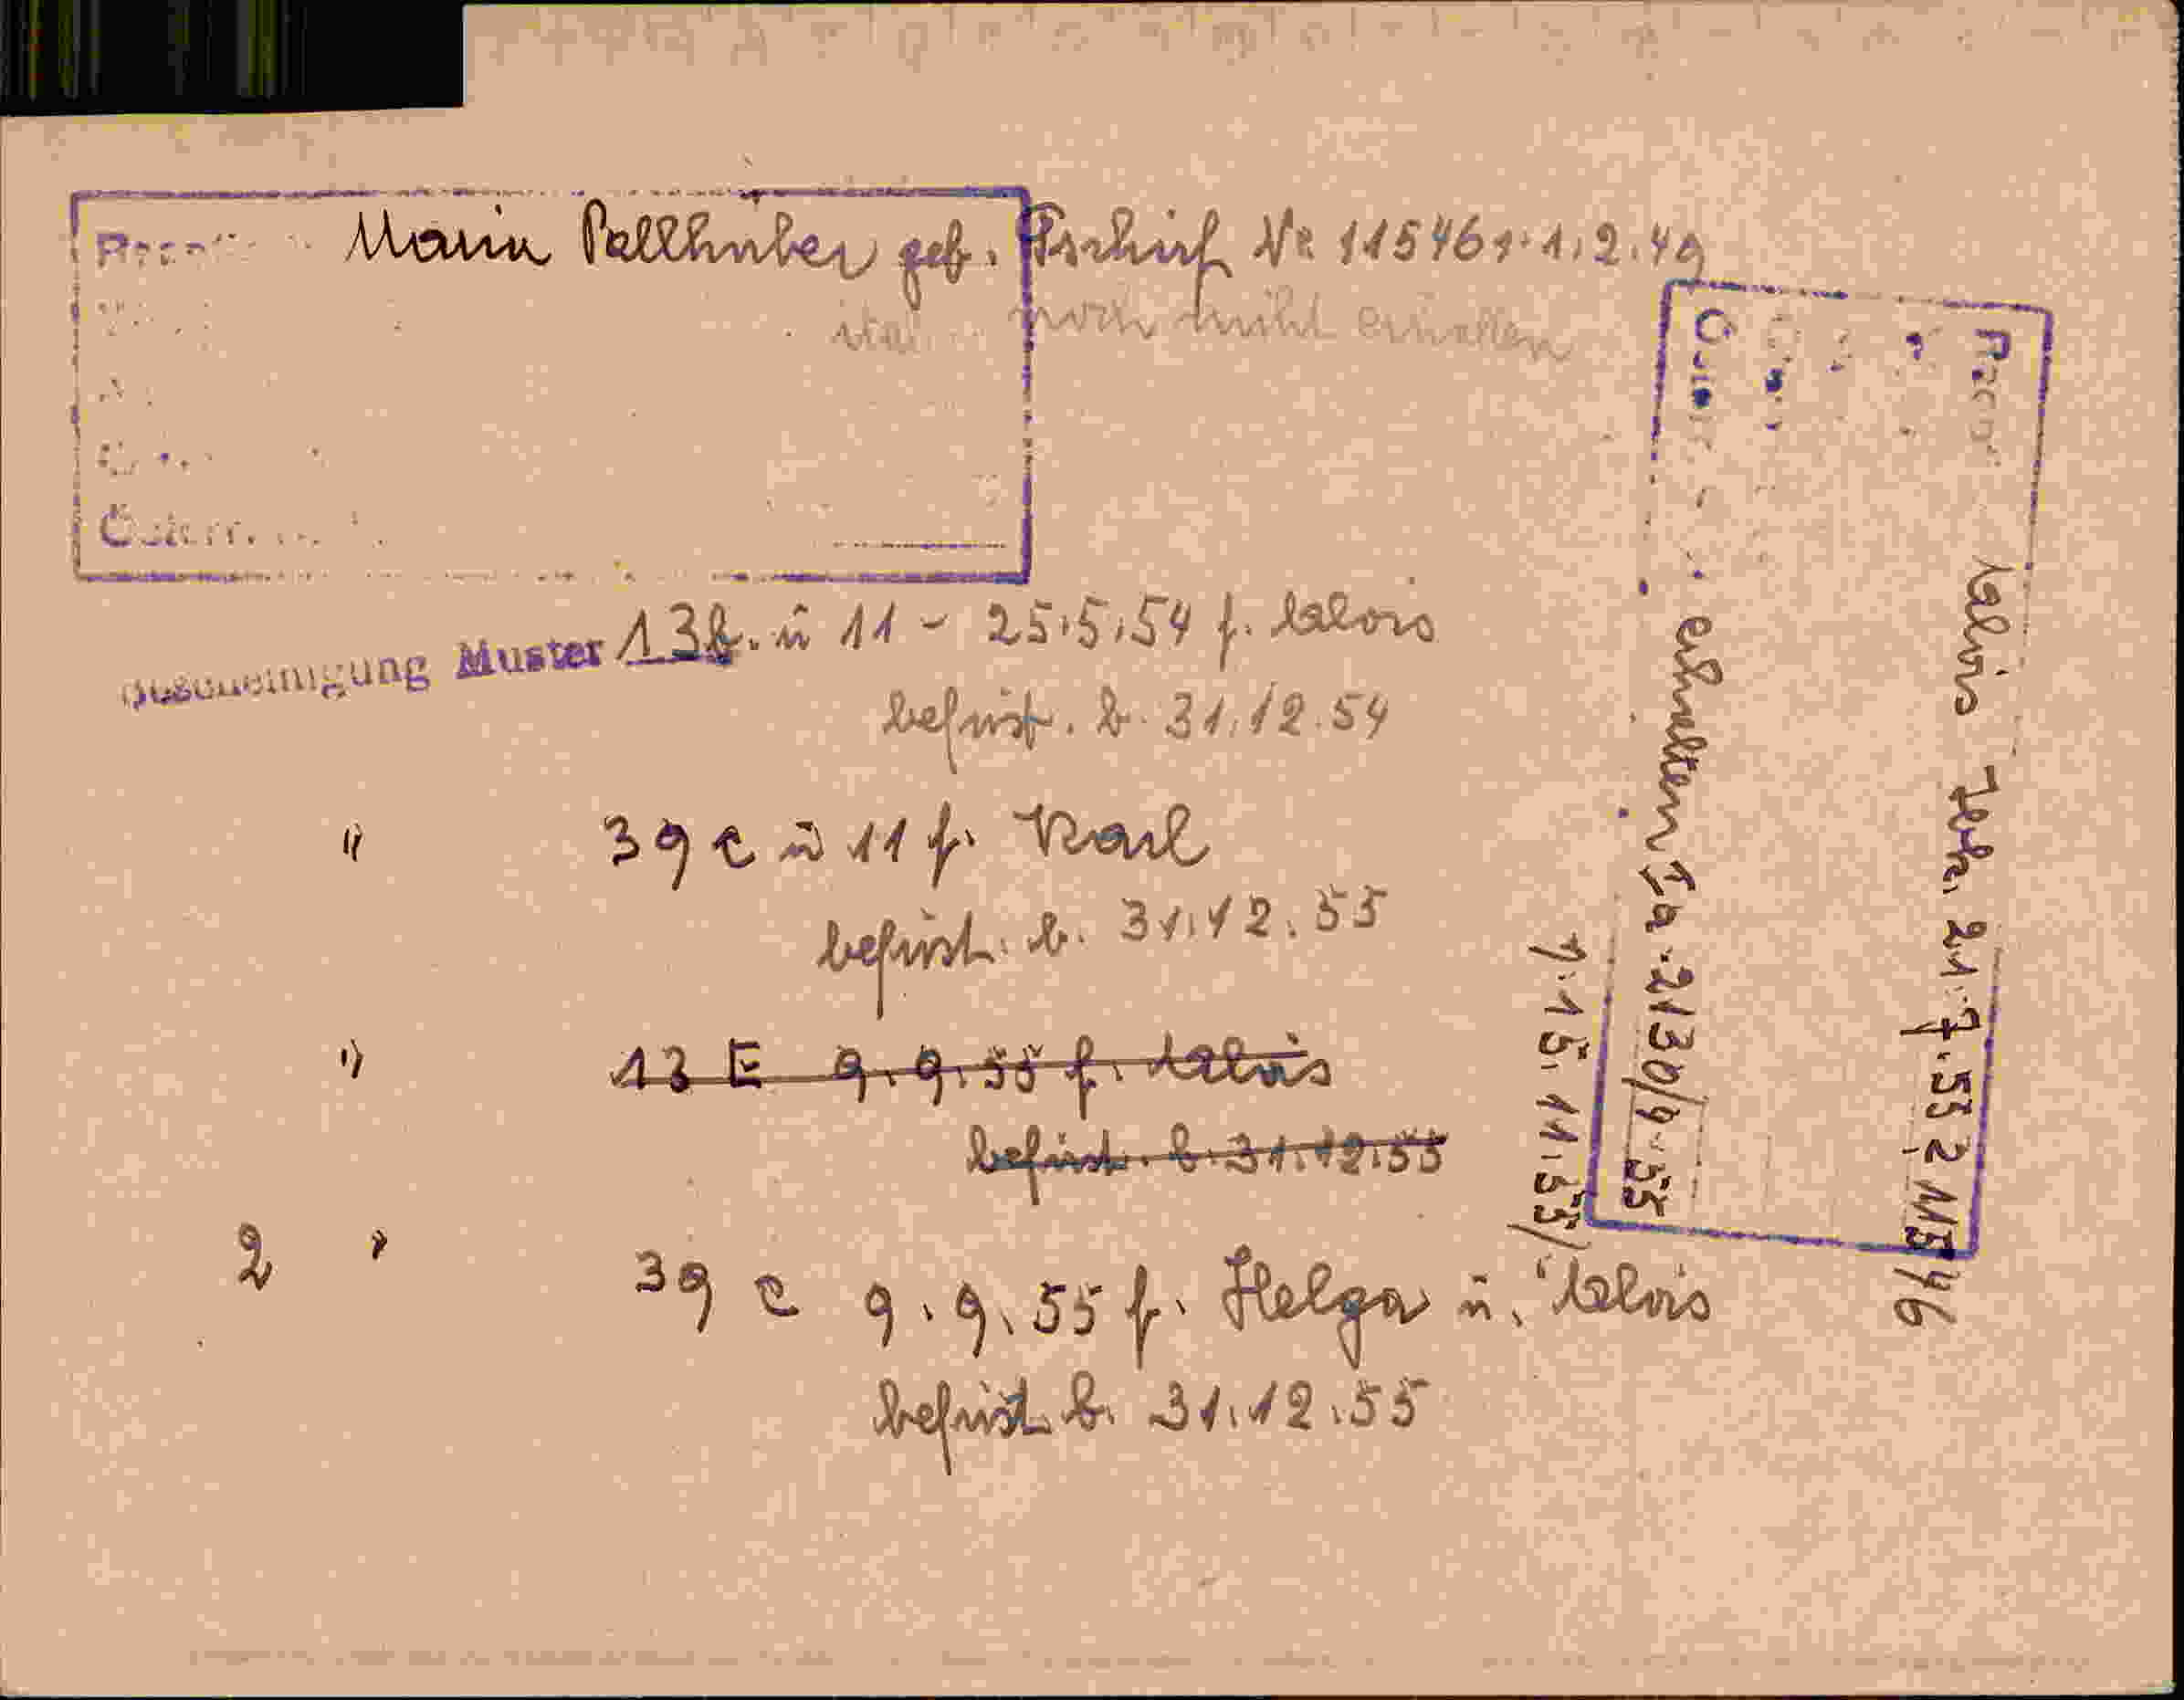 Maria Pallhuber geb. Tschurf Nr. 115461 1.2.49
noch nicht erhalten
Muster 13f. ü 11 - 25.5.54 f. Alois
befrist. b. 31.12.54
" 39 c ü 11 f. Karl
befrist. b. 31.12.55
" 13 E 9.9.55 f. Alois
befrist. b. 31.12.55
2 " 39 c 9.9.55 f. Helga u. Alois
befrist. b. 31.12.55
Alois 21.7.55
erhalten Ja. 2130/9.55
15.11.55